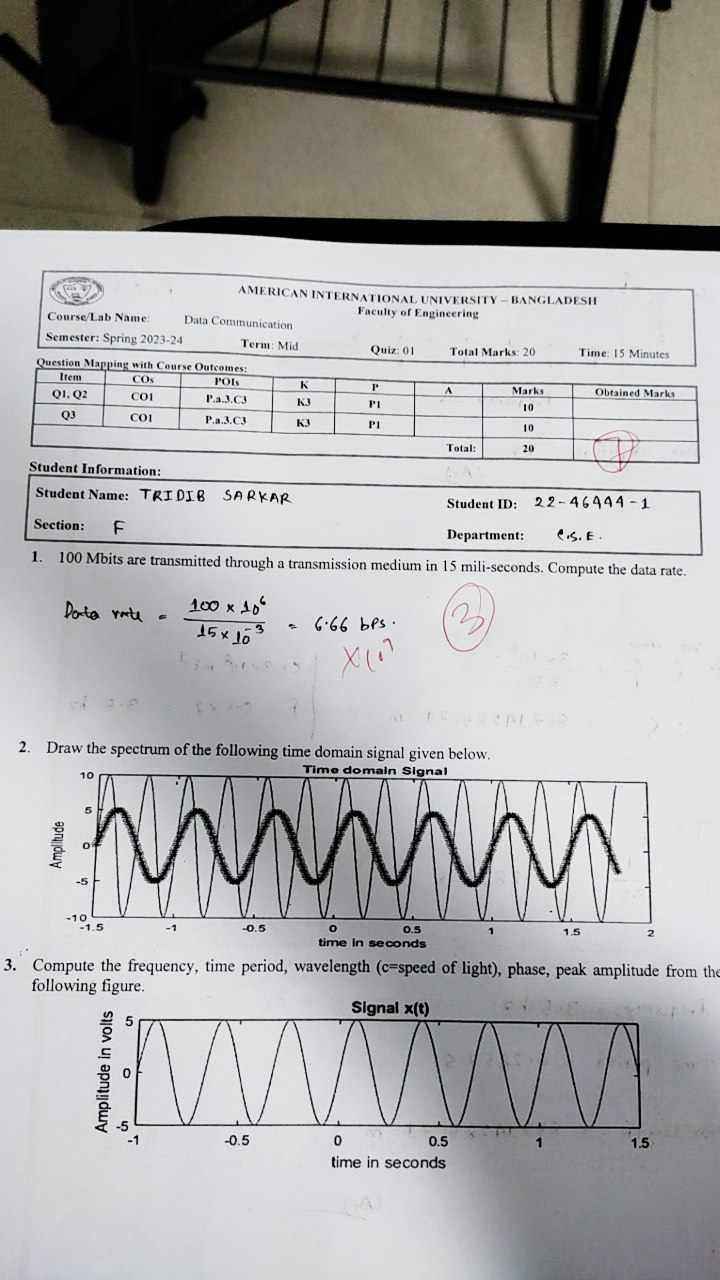 AMERICAN INTERNATIONAL UNIVERSITY – BANGLADESH
Faculty of Engineering
Course/Lab Name: Data Communication
Semester: Spring 2023-24 Term: Mid Quiz: 01 Total Marks: 20 Time: 15 Minutes
Question Mapping with Course Outcomes:
Item COs POIs K P A Marks Obtained Marks
Q1, Q2 CO1 P.a.3.C3 K3 P1 10
Q3 CO1 P.a.3.C3 K3 P1 10
Total: 20 7
Student Information:
Student Name: TRIDIB SARKAR Student ID: 22-46444-1
Section: F Department: C.S.E.
1. 100 Mbits are transmitted through a transmission medium in 15 mili-seconds. Compute the data rate.
Data rate = 100 × 10⁶ / 15 × 10⁻³ = 6.66 bps.
3
2. Draw the spectrum of the following time domain signal given below.
Time domain Signal
10
5
0
-5
-10
Amplitude
-1.5 -1 -0.5 0 0.5 1 1.5 2
time in seconds
3. Compute the frequency, time period, wavelength (c=speed of light), phase, peak amplitude from the
following figure.
Signal x(t)
5
0
-5
Amplitude in volts
-1 -0.5 0 0.5 1 1.5
time in seconds